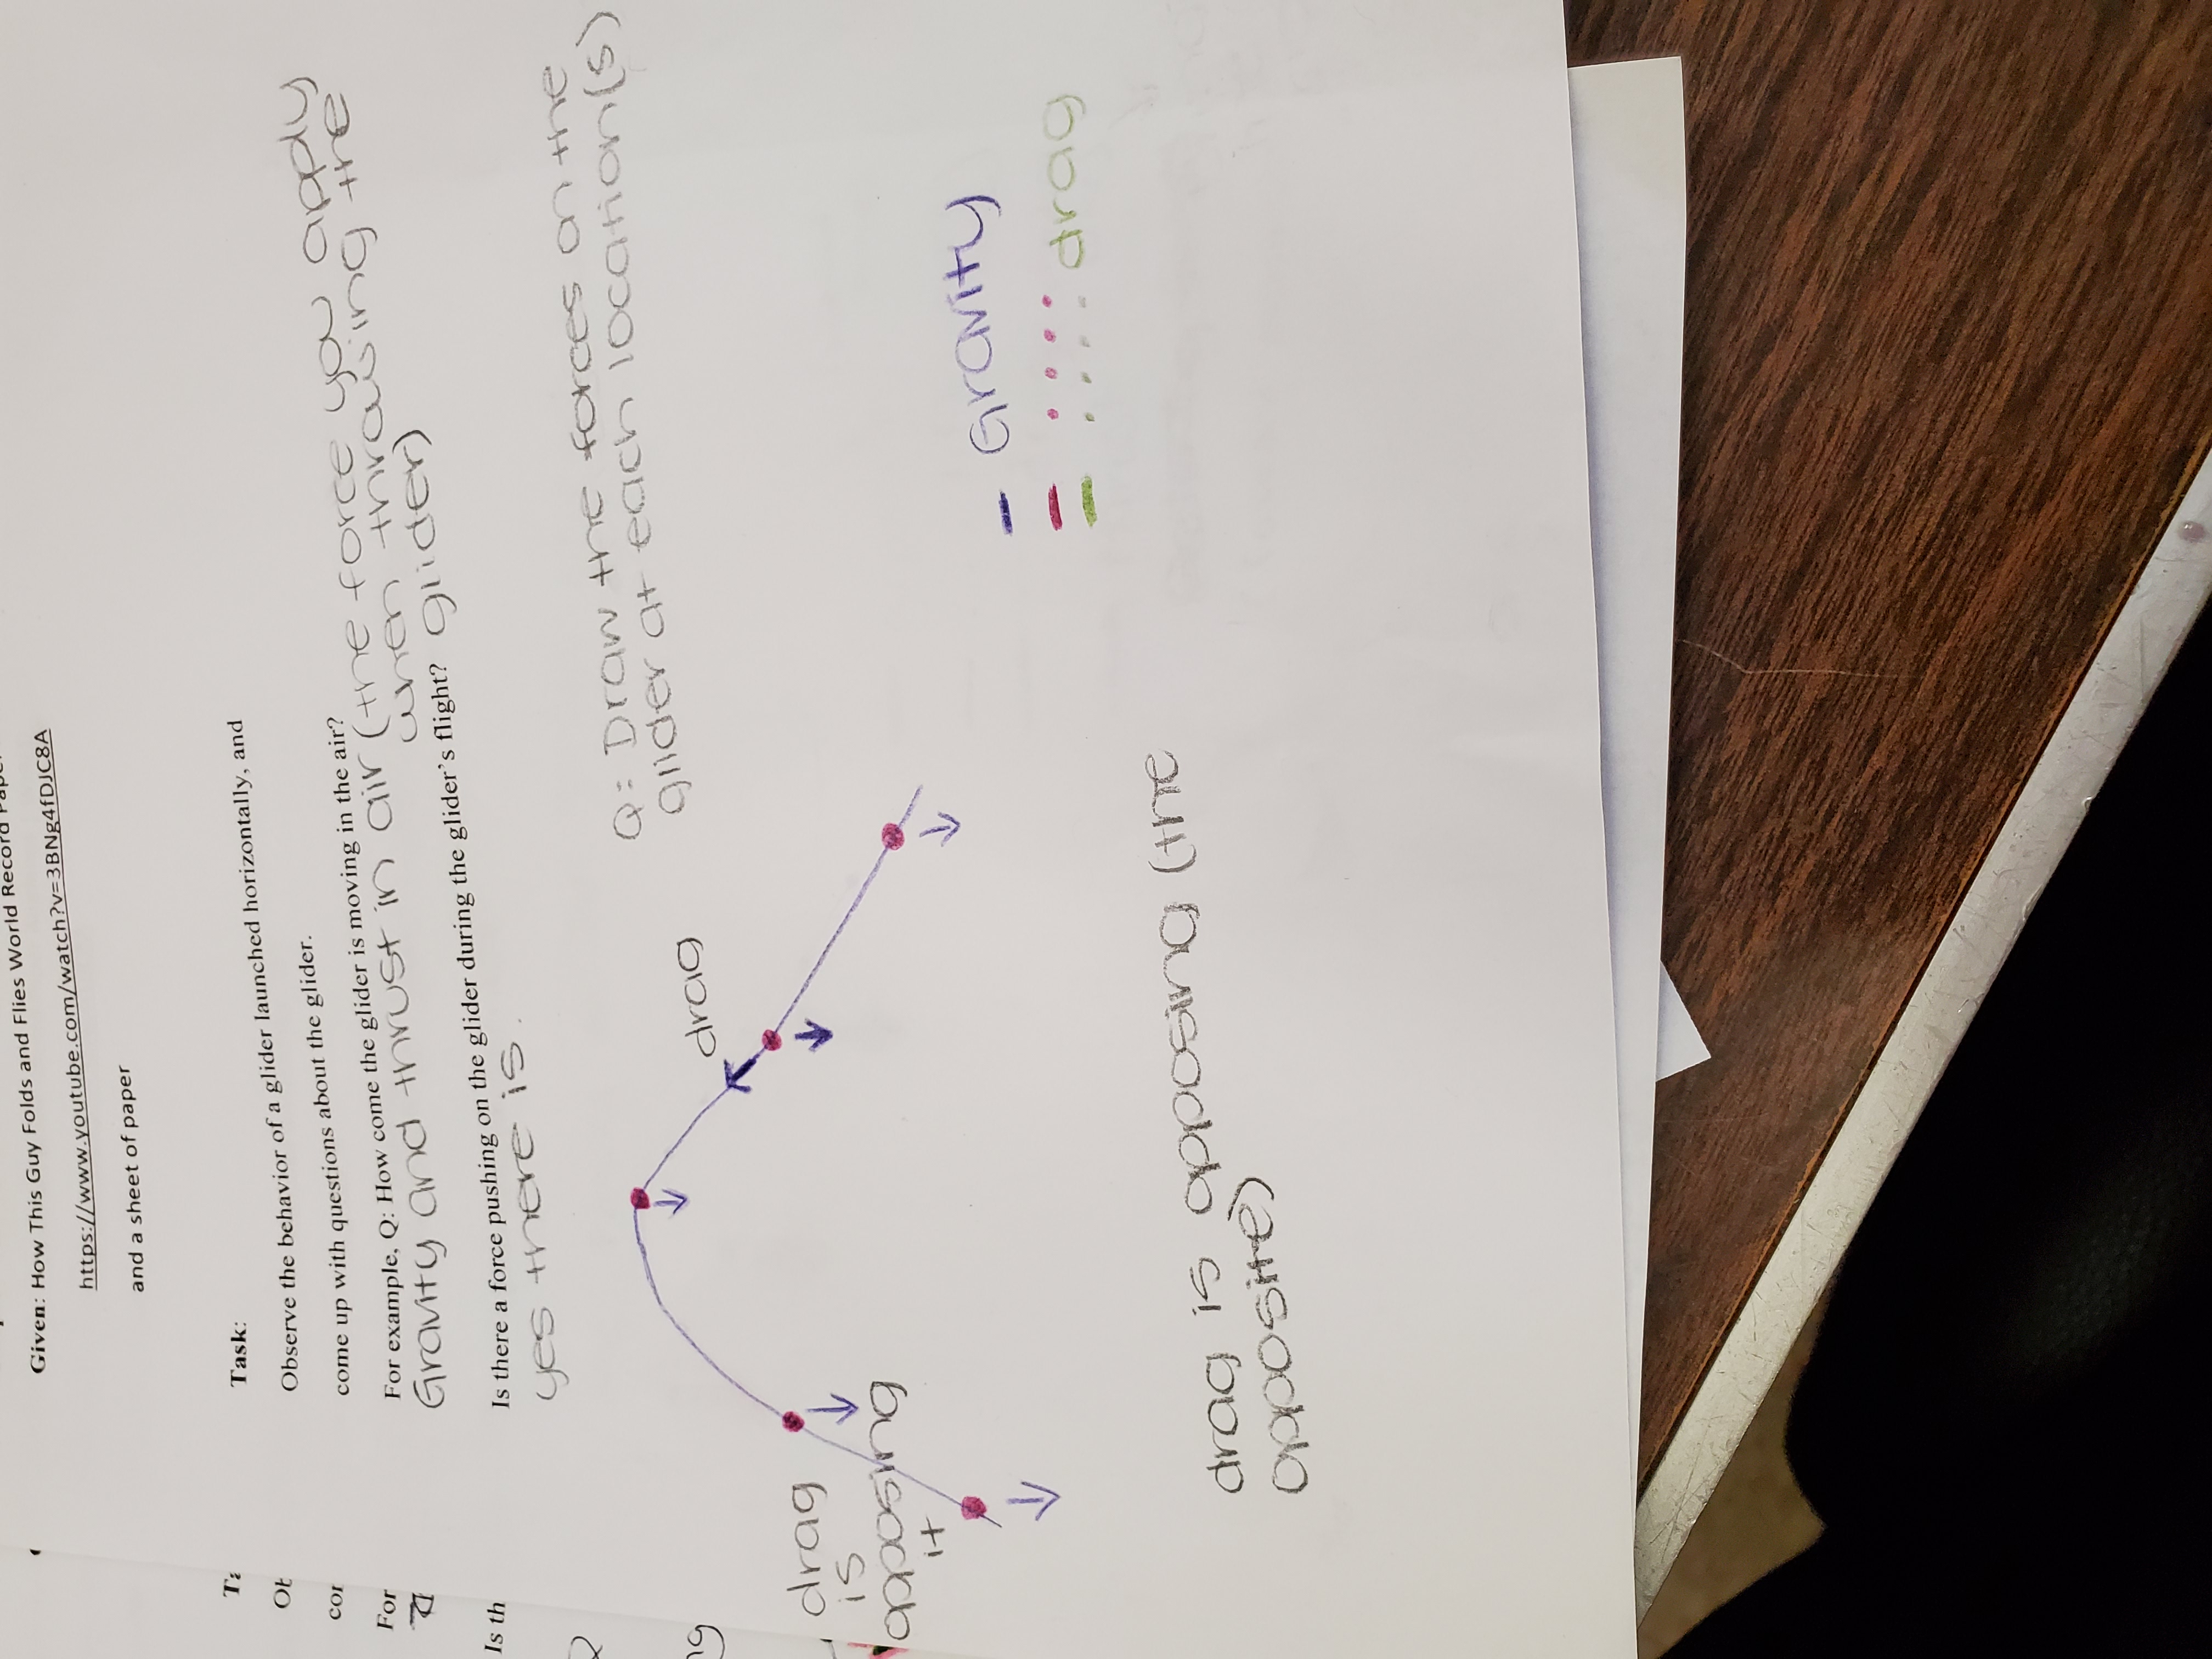 Given: How This Guy Folds and Flies World Record
https://www.youtube.com/watch?v=3BNg4fDJC8A
and a sheet of paper
Task:
Observe the behavior of a glider launched horizontally, and
come up with questions about the glider.
For example, Q: How come the glider is moving in the air?
Gravity and thrust in air (the force you apply
when throwing the
glider)
Is there a force pushing on the glider during the glider's flight?
yes there is.
Q: Draw the forces on the
glider at each location(s)
drag
drag
is
opposing
it
Gravity
drag
drag is opposing (the
opposite)
Ob
For
Is th
ng